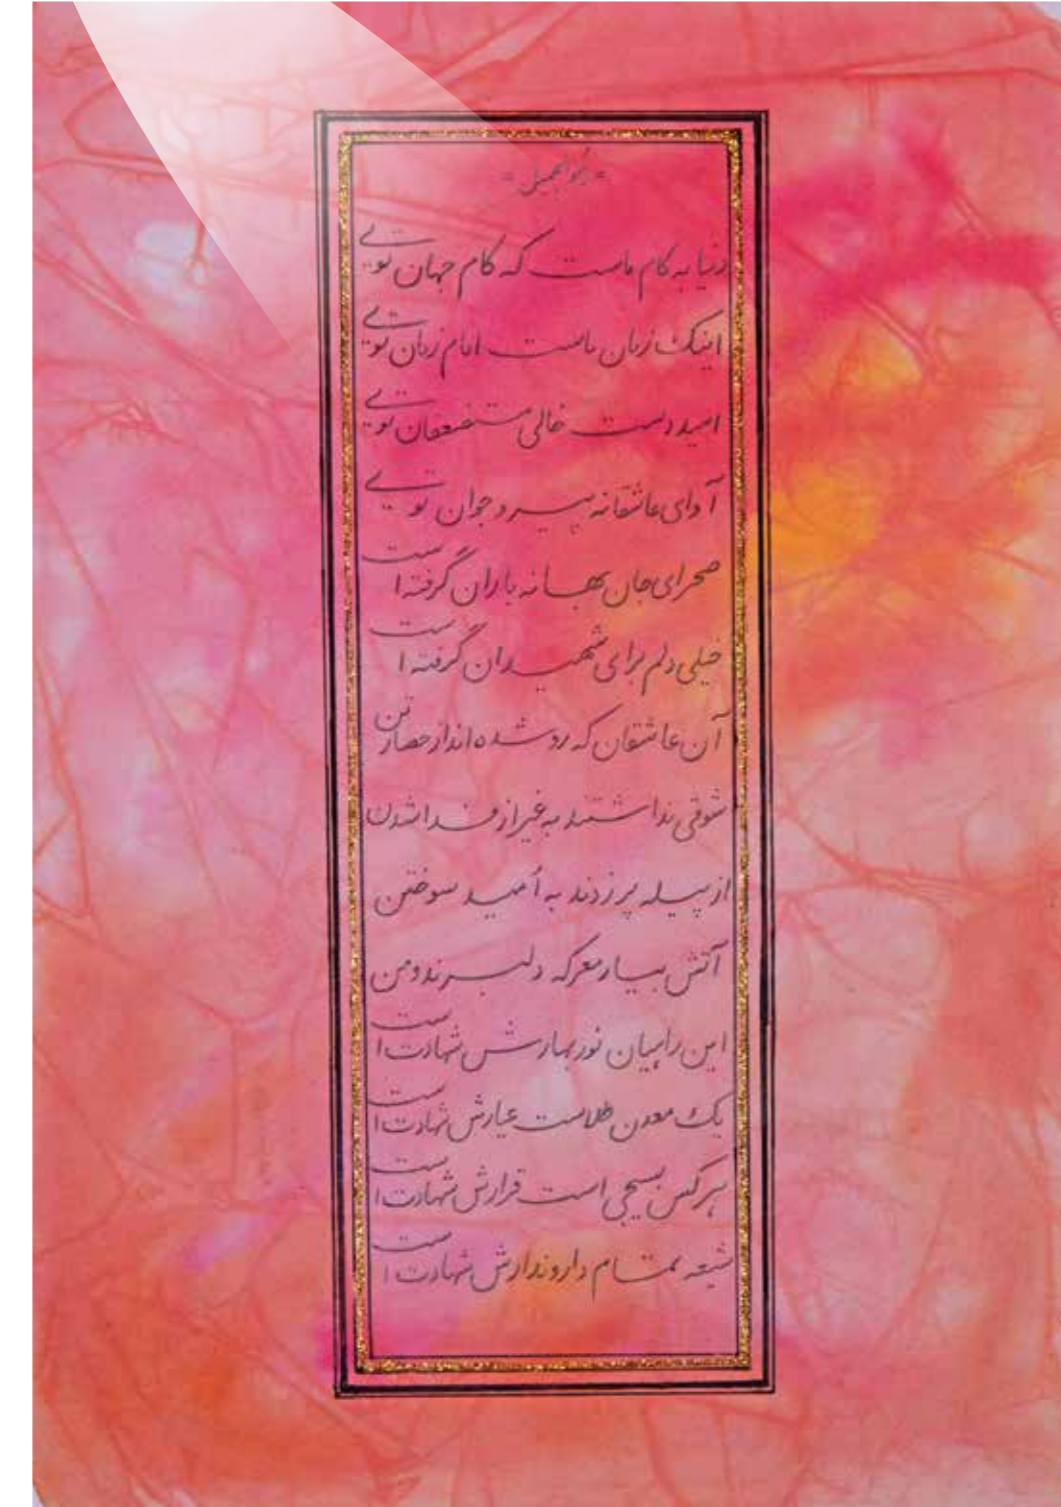 = هو الجمیل =
دنیا به کام ماست که کام جهان تویی
اینک زمان ماست امام زمان تویی
امید دست خالی مستضعفان تویی
آوای عاشقانه پیر و جوان تویی
صحرای جان بهانه باران گرفته است
خیلی دلم برای شهیدان گرفته است
آن عاشقان که رد شده اند از حصار تن
شوقی نداشتند به غیر از فدا شدن
از پیله پر زدند به اُمید سوختن
آتش بیار معرکه دلبرند و من
این راهیان نور بهارش شهادت است
یک معدن طلاست عیارش شهادت است
هر کس بسیجی است قرارش شهادت است
شیعه تمام دار و ندارش شهادت است